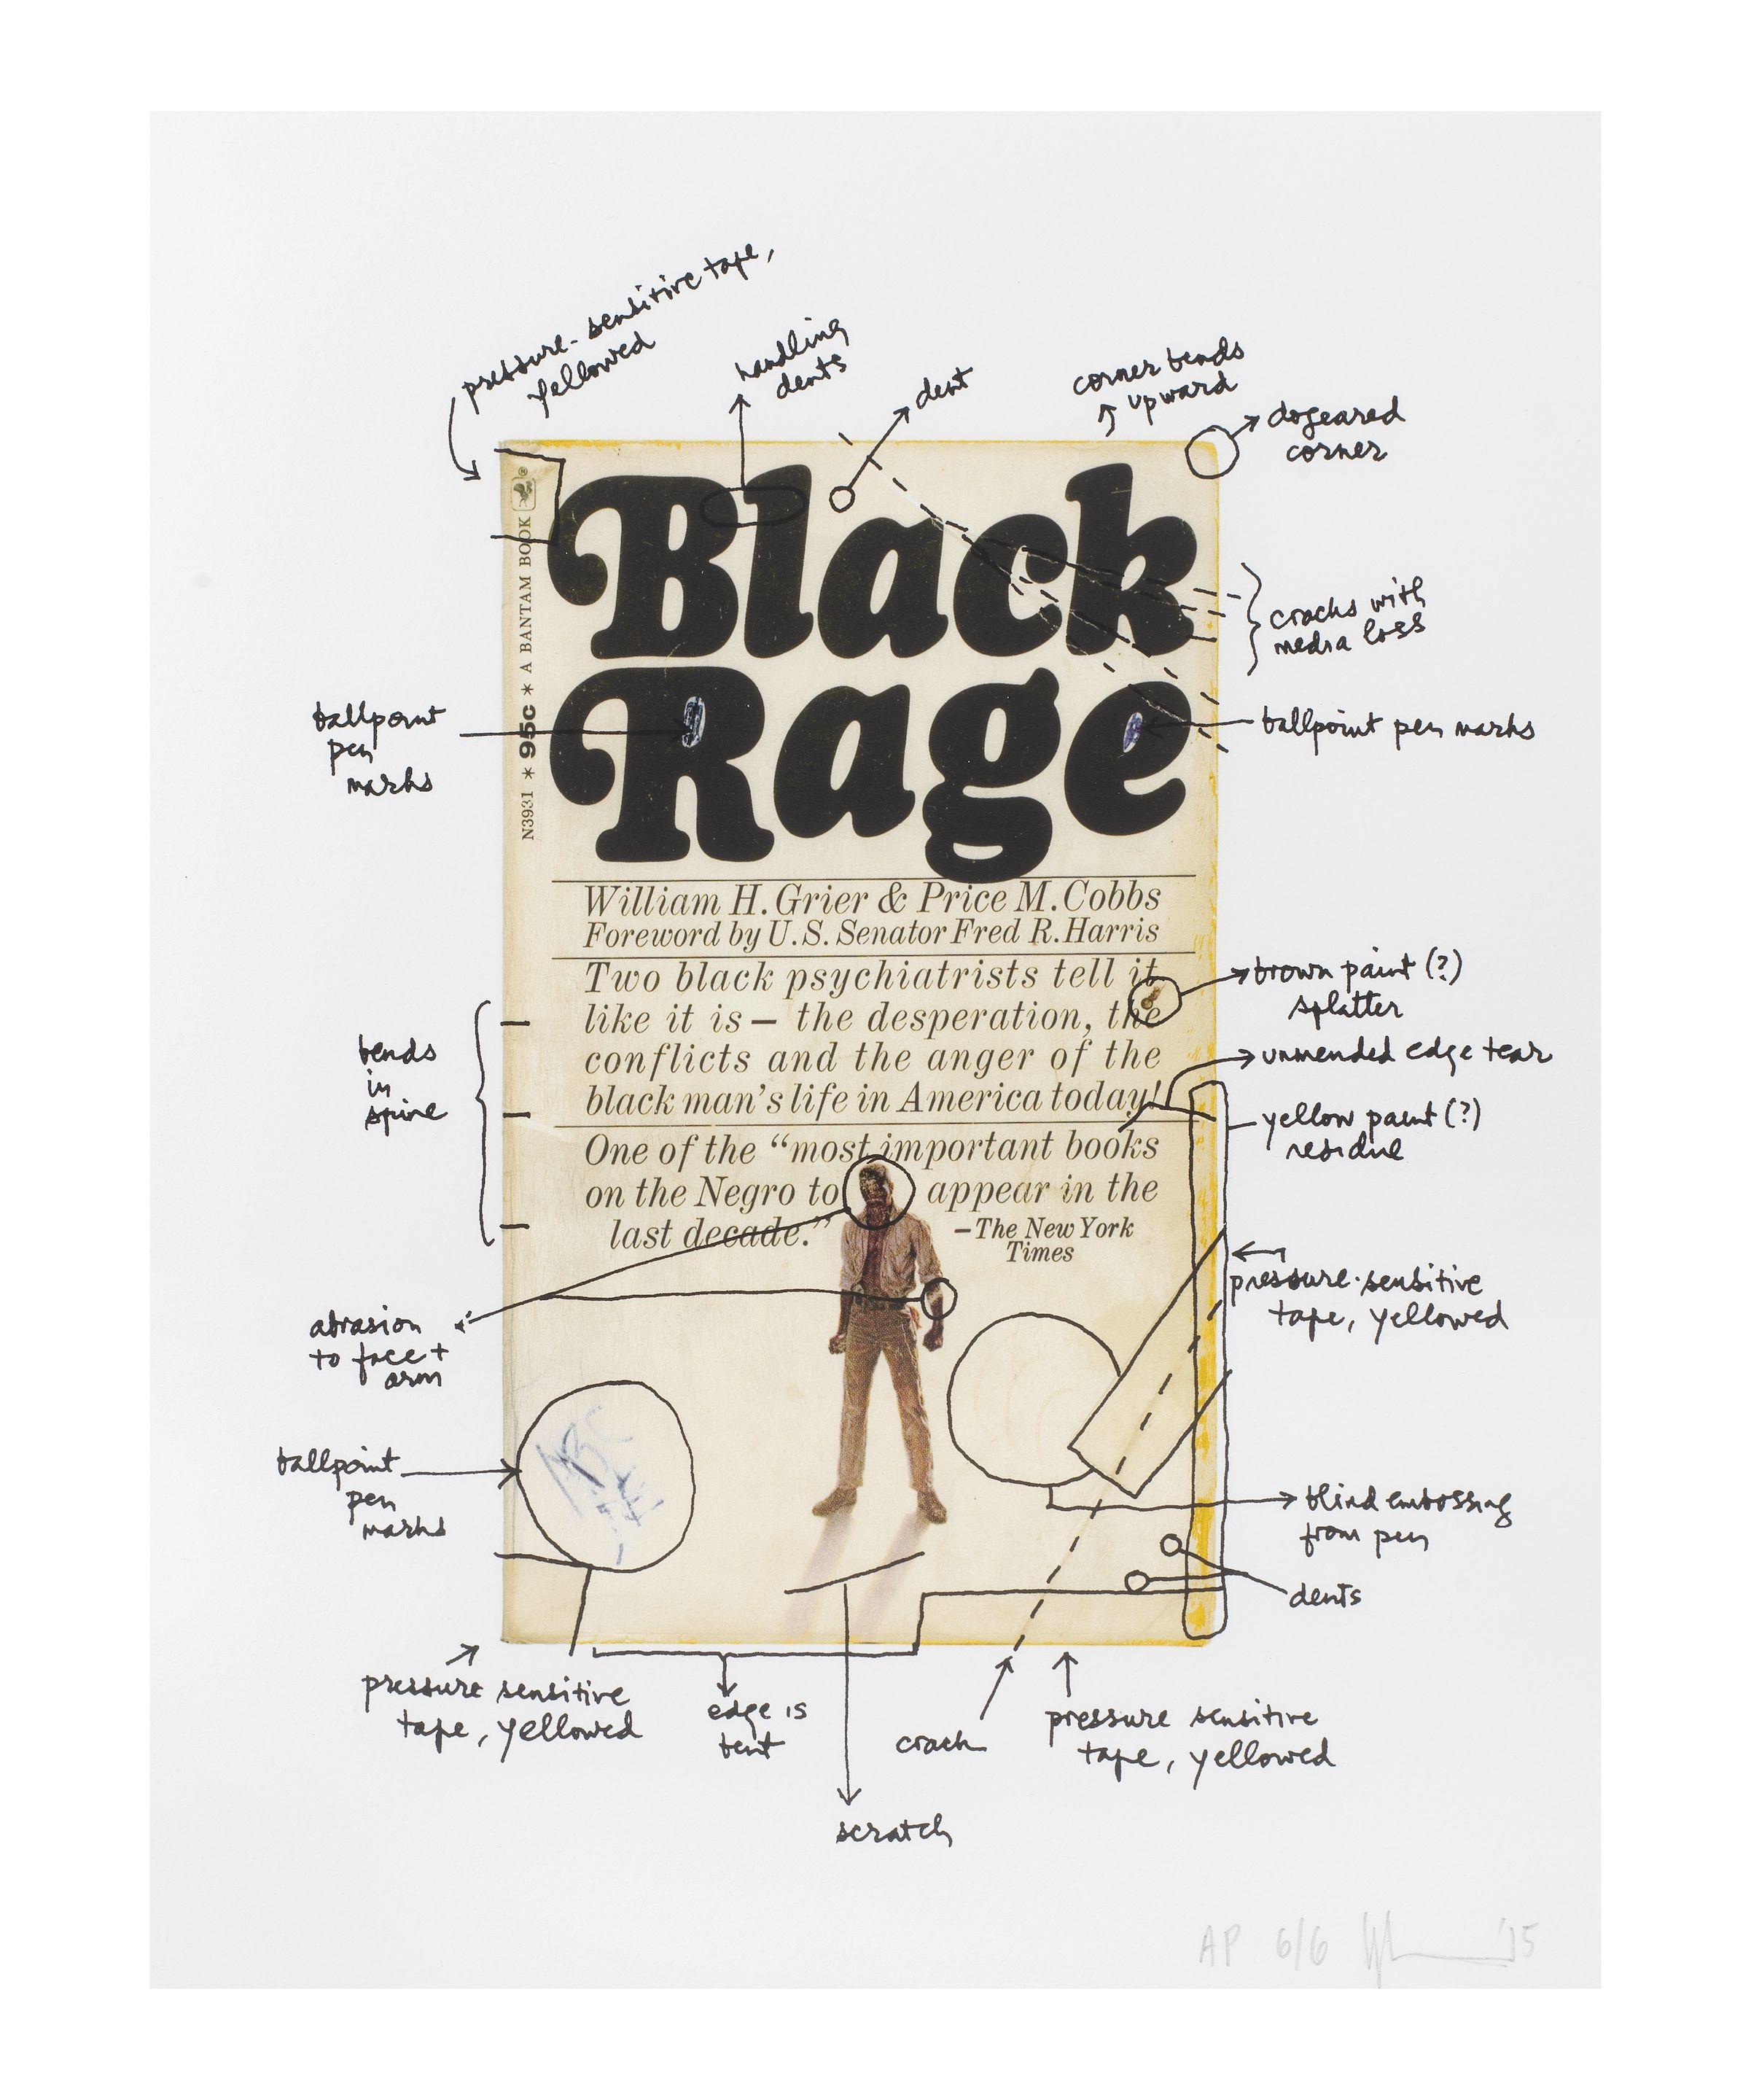 pressure-sensitive tape,
yellowed
handling
dents
dent
corner bends
upward
dogeared
corner
N3931 * 95c * A BANTAM BOOK
®
Black
Rage
cracks with
media loss
ballpoint
pen
marks
ballpoint pen marks
William H. Grier & Price M. Cobbs
Foreword by U.S. Senator Fred R. Harris
Two black psychiatrists tell it
like it is — the desperation, the
conflicts and the anger of the
black man's life in America today!
One of the “most important books
on the Negro to appear in the
last decade.”
—The New York
Times
brown paint (?)
splatter
unmended edge tear
yellow paint (?)
residue
bends
in
spine
pressure-sensitive
tape, yellowed
abrasion
to face +
arm
ballpoint
pen
marks
blind embossing
from pen
dents
pressure sensitive
tape, yellowed
edge is
bent
crack
pressure sensitive
tape, yellowed
scratch
AP 6/6 '15